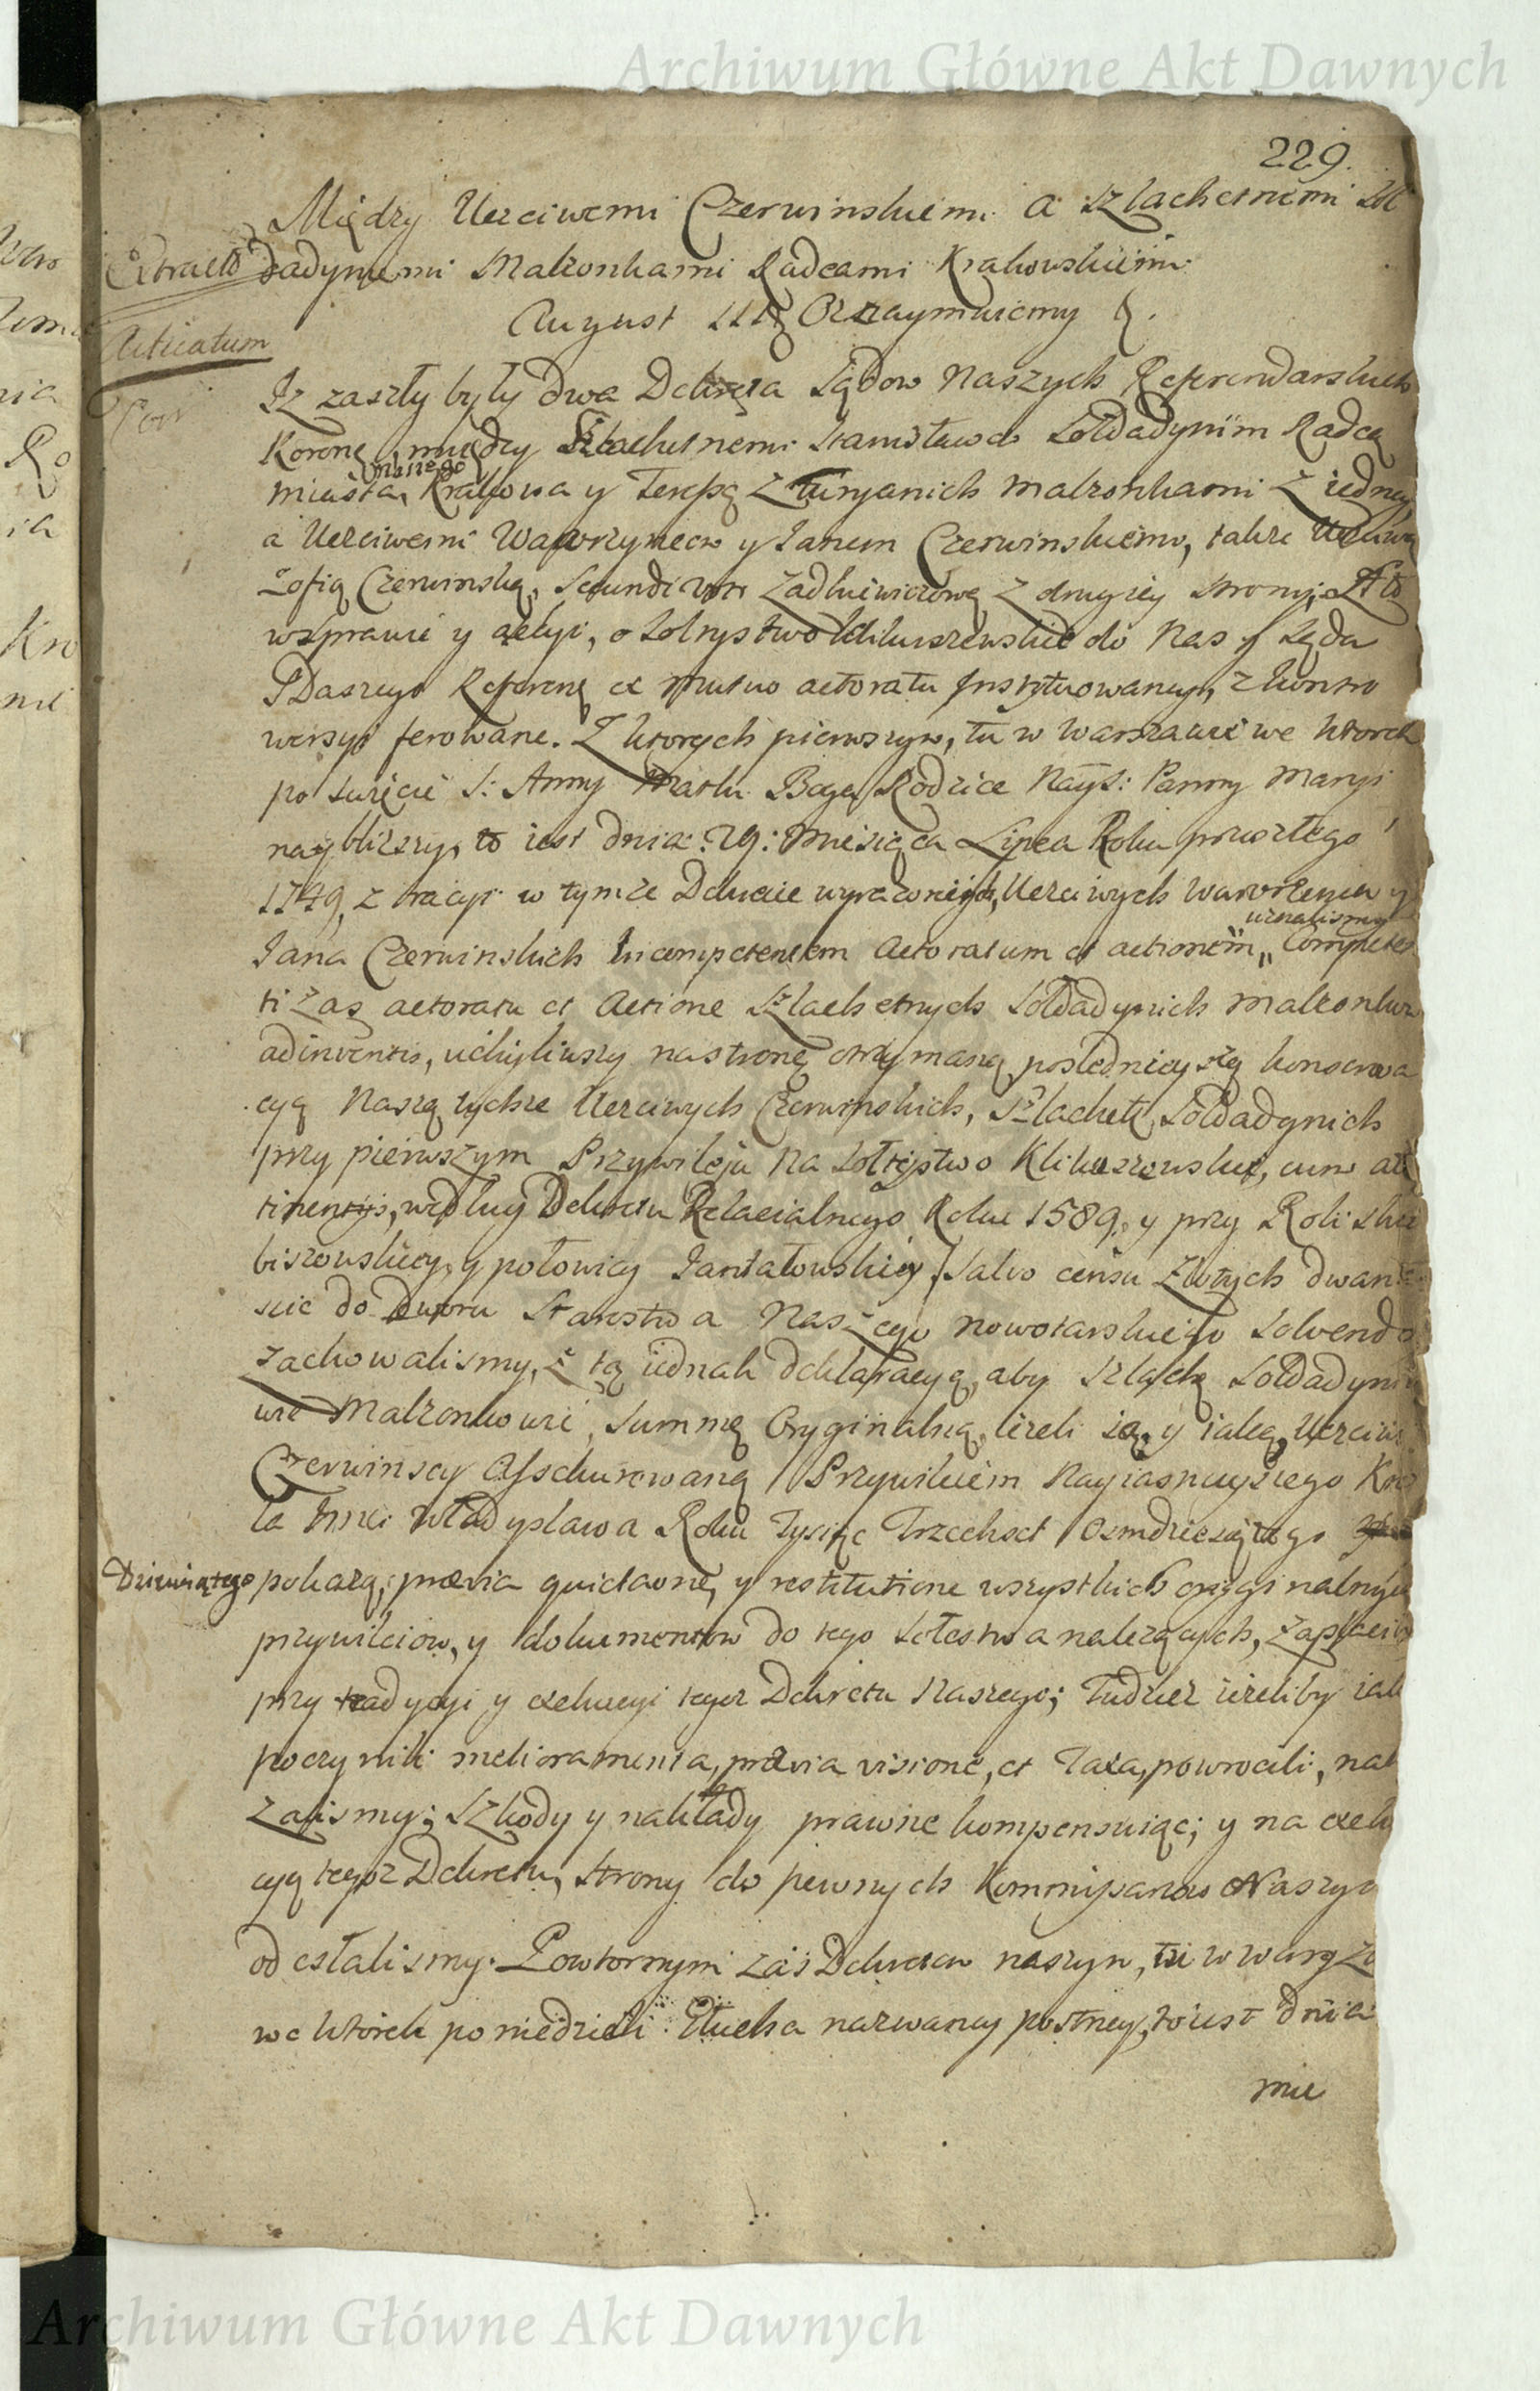 Archiwum Główne Akt Dawnych
229.
Między Uczciwemi Czerwinskiemi a Szlachetnemi Sol
Extractό dadynemi Małżonkami Radcami Krakowskiemi
August III Oznaymuiemy
Acticatum
Iz zaszły były dwa Dekreta Sądow Naszych Referendarskich
Koronę między Szlachetnemi Stanisławem Soldadynim Radcą
naszego
miasta Krakowa y Teressą z małżonkami z iedney
a Uczciwemi Wawrzyncem y Janem Czerwinskiemi, także Uczciwą
Zofią Czerwinską, secundi voti Zadkiewiczową z drugiey strony
wsprawie y akcyi, o Soltystwo Klikuszewskie do Nas y Sądu
Naszego Referenę ex mutuo actoratu instytuowaney, z kontro
wersyi ferowane. Z ktorych pierwszym, tu w Warszawie we wtorek
po swięcie S: Anny Matki Boga Rodzice Nayś: Panny Maryi
nayblizszy, to iest dnia: 29: Miesiąca Lipca Roku przeszłego
1749, z racyi w tymże Dekrecie wyrazonych, Uczciwych Wawrzenca y
uznalismy
Jana Czerwinskich Incompetentem Actoratum et actionem „ Competen
ti zas actoratu et Actione Szlachetnych Soldadynich małżonkow
adinventis, uchyliwszy nastronę otrzymaną poslednieyszą konserwa
cyą Naszą tychże Uczciwych Czerwinskich, Szlachetę Soldadynich
przy pierwszym Przywileju na Sołtystwo Klikuszowskie, cum at
tinentijs, według Dekretu Relacialnego Roku 1589. y przy Roli Sku
biszowskiey, y połowicy Jantałowskiey, salvo censu Złotych dwanas
cie do Dworu Starostwa Naszego nowotarskiego solvendo
zachowalismy, z tą iednak deklaracyą, aby Szlachę Soldadyni
wie Małżonkowie, Summę Oryginalną, ieżeli ią, y iaką, Uczciwi
Czerwinscy Assekurowaną Przywileiem Nayiasnieyszego Kró
la Jmci Władysława Roku Tysiąc Trzechset Osmdziesiątego
Dziewiątego pokażą, prævia quietaone, y restitutione wszystkich oryginalnych
przywileiow, y dokumentow do tego Sołestwa należących, zapłacili
przy tradycyi y exekucyi tegoz Dekretu Naszego; Tudziez ieżeliby iak
poczynili meliora menta, prævia visione, et Taxa, powrocili, nak
zalismy; Szkody y nakłady prawne kompensuiąc; y na exeku
cyą tegoz Dekretu, strony do pewnych Kommissarzow Naszych
odesłalismy. Powtornym zaś Dekretem naszym, tu w Warsza
we wtorek po niedzieli Głucha nazwaney postney, to iest dnia
mie
Archiwum Główne Akt Dawnych